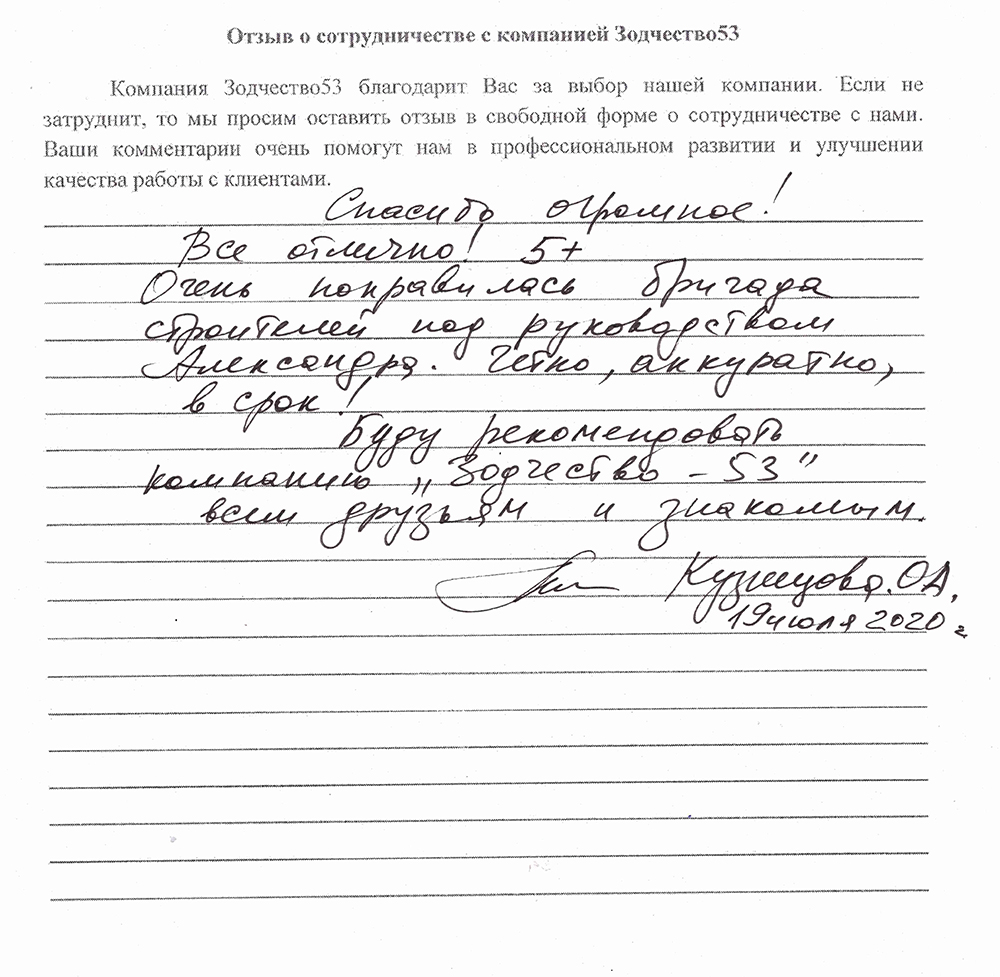 Отзыв о сотрудничестве с компанией Зодчество53
Компания Зодчество53 благодарит Вас за выбор нашей компании. Если не
затруднит, то мы просим оставить отзыв в свободной форме о сотрудничестве с нами.
Ваши комментарии очень помогут нам в профессиональном развитии и улучшении
качества работы с клиентами.
Спасибо огромное!
Все отлично! 5+
Очень понравилась бригада
строителей под руководством
Александра. Четко, аккуратно,
в срок!
Буду рекомендовать
компанию „Зодчество - 53"
всем друзьям и знакомым.
Кузнецова. О.А.
19 июля 2020 г